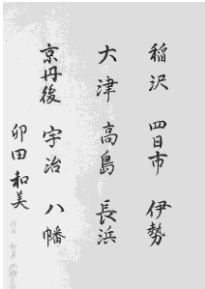 稲沢 四日市 伊勢
大津 高島 長浜
京丹後 宇治 八幡
卯田 和美